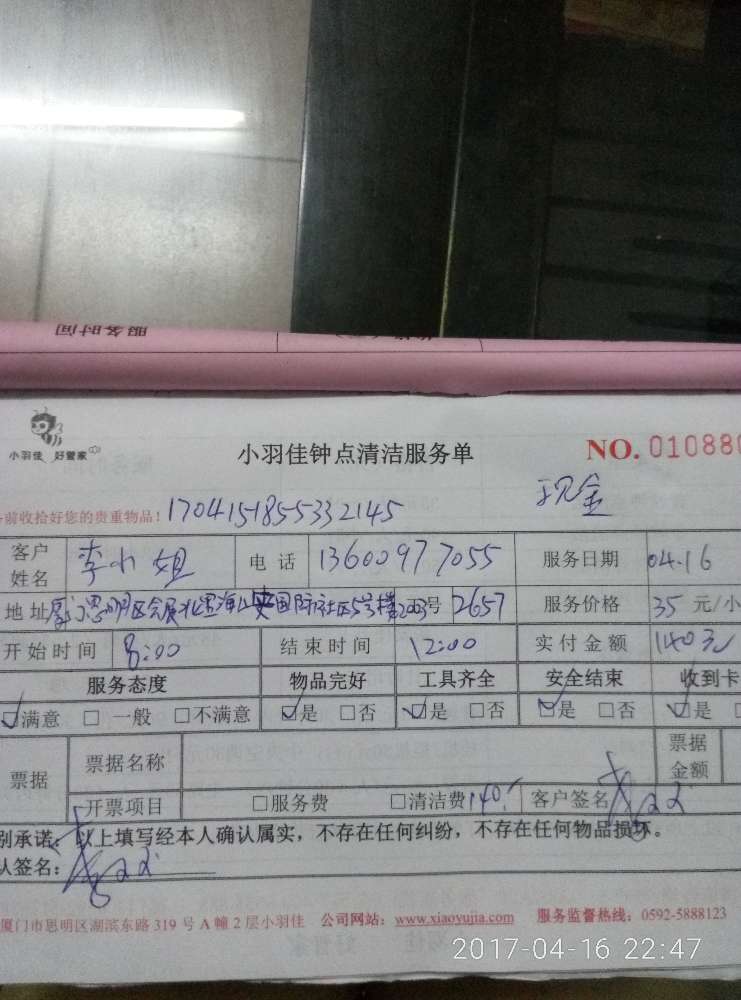 服务时间
小羽佳 好管家
小羽佳钟点清洁服务单
NO. 010880
现金
前收拾好您的贵重物品! 17041518555332145
客户姓名 李小姐 电话 13600977055 服务日期 04.16
地址 厦门思明区会展北里海上国际社区5号楼2003 号 2657 服务价格 35 元/小
开始时间 8:00 结束时间 12:00 实付金额 140元
服务态度 物品完好 工具齐全 安全结束 收到卡
☑满意 □一般 □不满意 ☑是 □否 ☑是 □否 ☑是 □否 ☑是 □
票据 票据名称 票据金额
开票项目 □服务费 □清洁费140. 客户签名
别承诺: 以上填写经本人确认属实,不存在任何纠纷,不存在任何物品损坏。
认签名:
厦门市思明区湖滨东路 319 号 A 幢 2 层小羽佳 公司网站: www.xiaoyujia.com 服务监督热线: 0592-5888123
2017-04-16 22:47